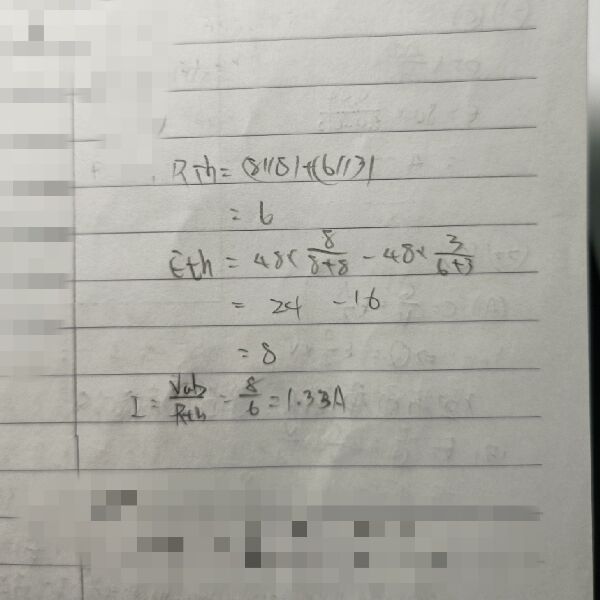 Rth = (8//8)+(6//3)
= 6
Eth = 48× 8/(8+8) - 48× 3/(6+3)
= 24 - 16
= 8
I = Vab/Rth = 8/6 = 1.33A